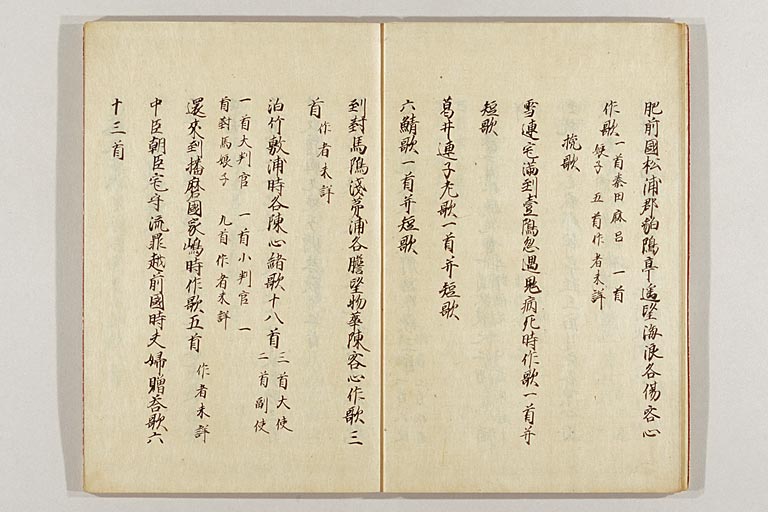 肥前國松浦郡狛嶋亭遥望海浪各傷客心
作歌一首秦田麻呂 一首
娘子 五首作者未詳
挽歌
雪連宅満到壹嶋忽遇鬼病死時作歌一首并
短歌
葛井連子老歌一首并短歌
六鯖歌一首并短歌
到對馬嶋淺茅浦各瞻望物華陳客心作歌三
首作者未詳
泊竹敷浦時各陳心緒歌十八首三首大使
二首副使
一首大判官 一首小判官 一
首對馬娘子 九首作者未詳
還來到播磨國家嶋時作歌五首 作者未詳
中臣朝臣宅守流罪越前國時夫婦贈答歌六
十三首